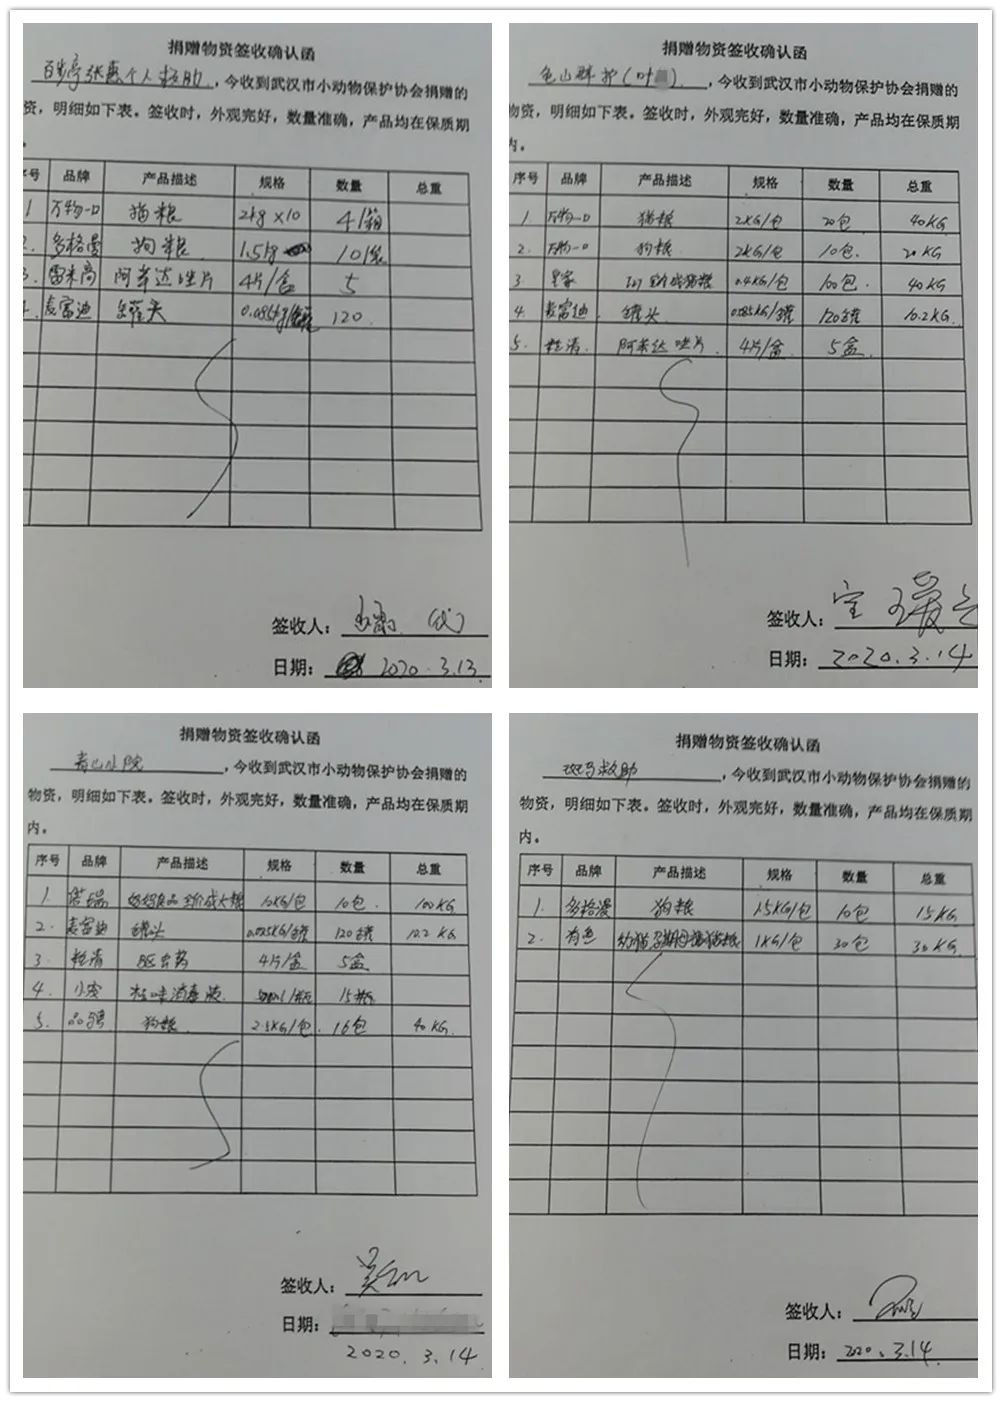 捐赠物资签收确认函
百步亭张惠个人救助，今收到武汉市小动物保护协会捐赠的
资，明细如下表。签收时，外观完好，数量准确，产品均在保质期
序号 品牌 产品描述 规格 数量 总重
1 万物一口 猫粮 2kg×10 4/箱
2. 多格漫 狗粮 1.5kg 10/袋
3. 雷米高 阿苯达唑片 4片/盒 5
4. 麦富迪 罐头 0.085kg/罐 120
签收人： (代)
日期： 2020.3.13
捐赠物资签收确认函
龟山群护(叶 )，今收到武汉市小动物保护协会捐赠的
物资，明细如下表。签收时，外观完好，数量准确，产品均在保质期
内。
序号 品牌 产品描述 规格 数量 总重
1. 万物一口 猫粮 2KG/包 20包 40KG
2. 万物一口 狗粮 2KG/包 10包. 20KG
3. 皇家 成猫粮 0.4KG/包 100包. 40KG
4. 麦富迪 罐头 0.085KG/罐 120罐 10.2KG.
5. 粒清. 阿苯达唑片 4片/盒 5盒.
签收人：
日期：2020.3.14
捐赠物资签收确认函
青山小院，今收到武汉市小动物保护协会捐赠的
物资，明细如下表。签收时，外观完好，数量准确，产品均在保质期
内。
序号 品牌 产品描述 规格 数量 总重
1. 全价成犬粮 10KG/包 10包. 100KG.
2. 麦富迪 罐头 0.085KG/罐 120罐 10.2KG
3. 粒清 驱虫药 4片/盒 5盒
4. 小宠 祛味消毒液. 500ml/瓶 15瓶
5. 狗粮 2.5KG/包. 16包 40KG.
签收人：
日期：
2020.3.14
捐赠物资签收确认函
斑马救助，今收到武汉市小动物保护协会捐赠的
物资，明细如下表。签收时，外观完好，数量准确，产品均在保质期
内。
序号 品牌 产品描述 规格 数量 总重
1. 多格漫 狗粮 1.5KG/包 10包 15KG
2. 有鱼 1KG/包 30包 30KG.
签收人：
日期：2020.3.14